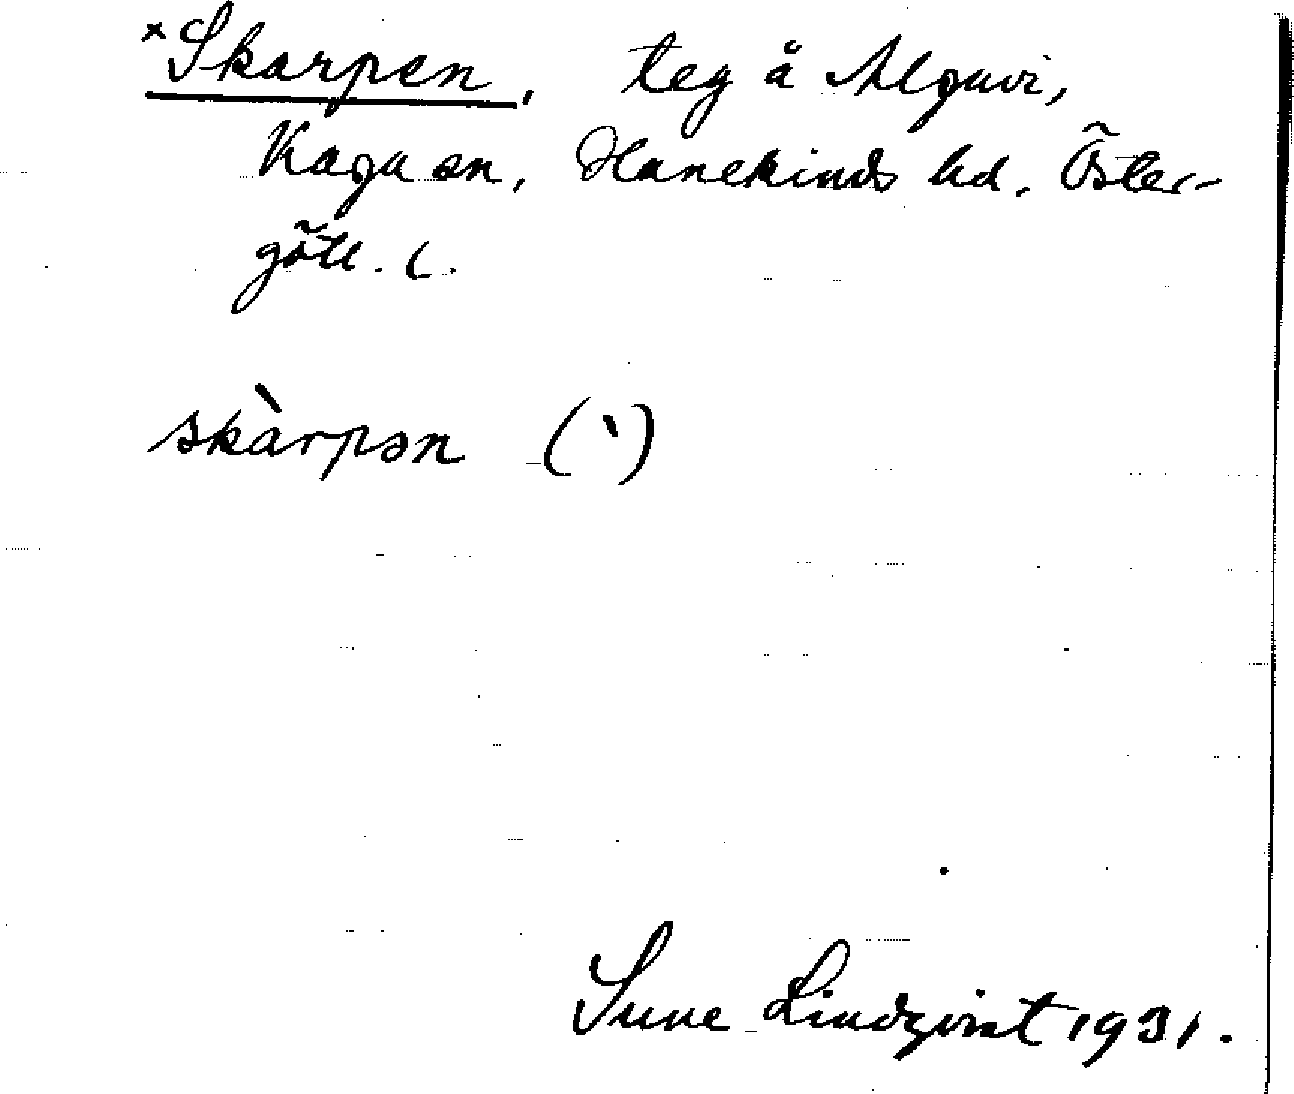 ×Skarpen, teg å Alguvi,
Kaga sn, Hanekinds hd. Öster-
götl. l.
skàrpən (`)
Sune Lindqvist 1931.